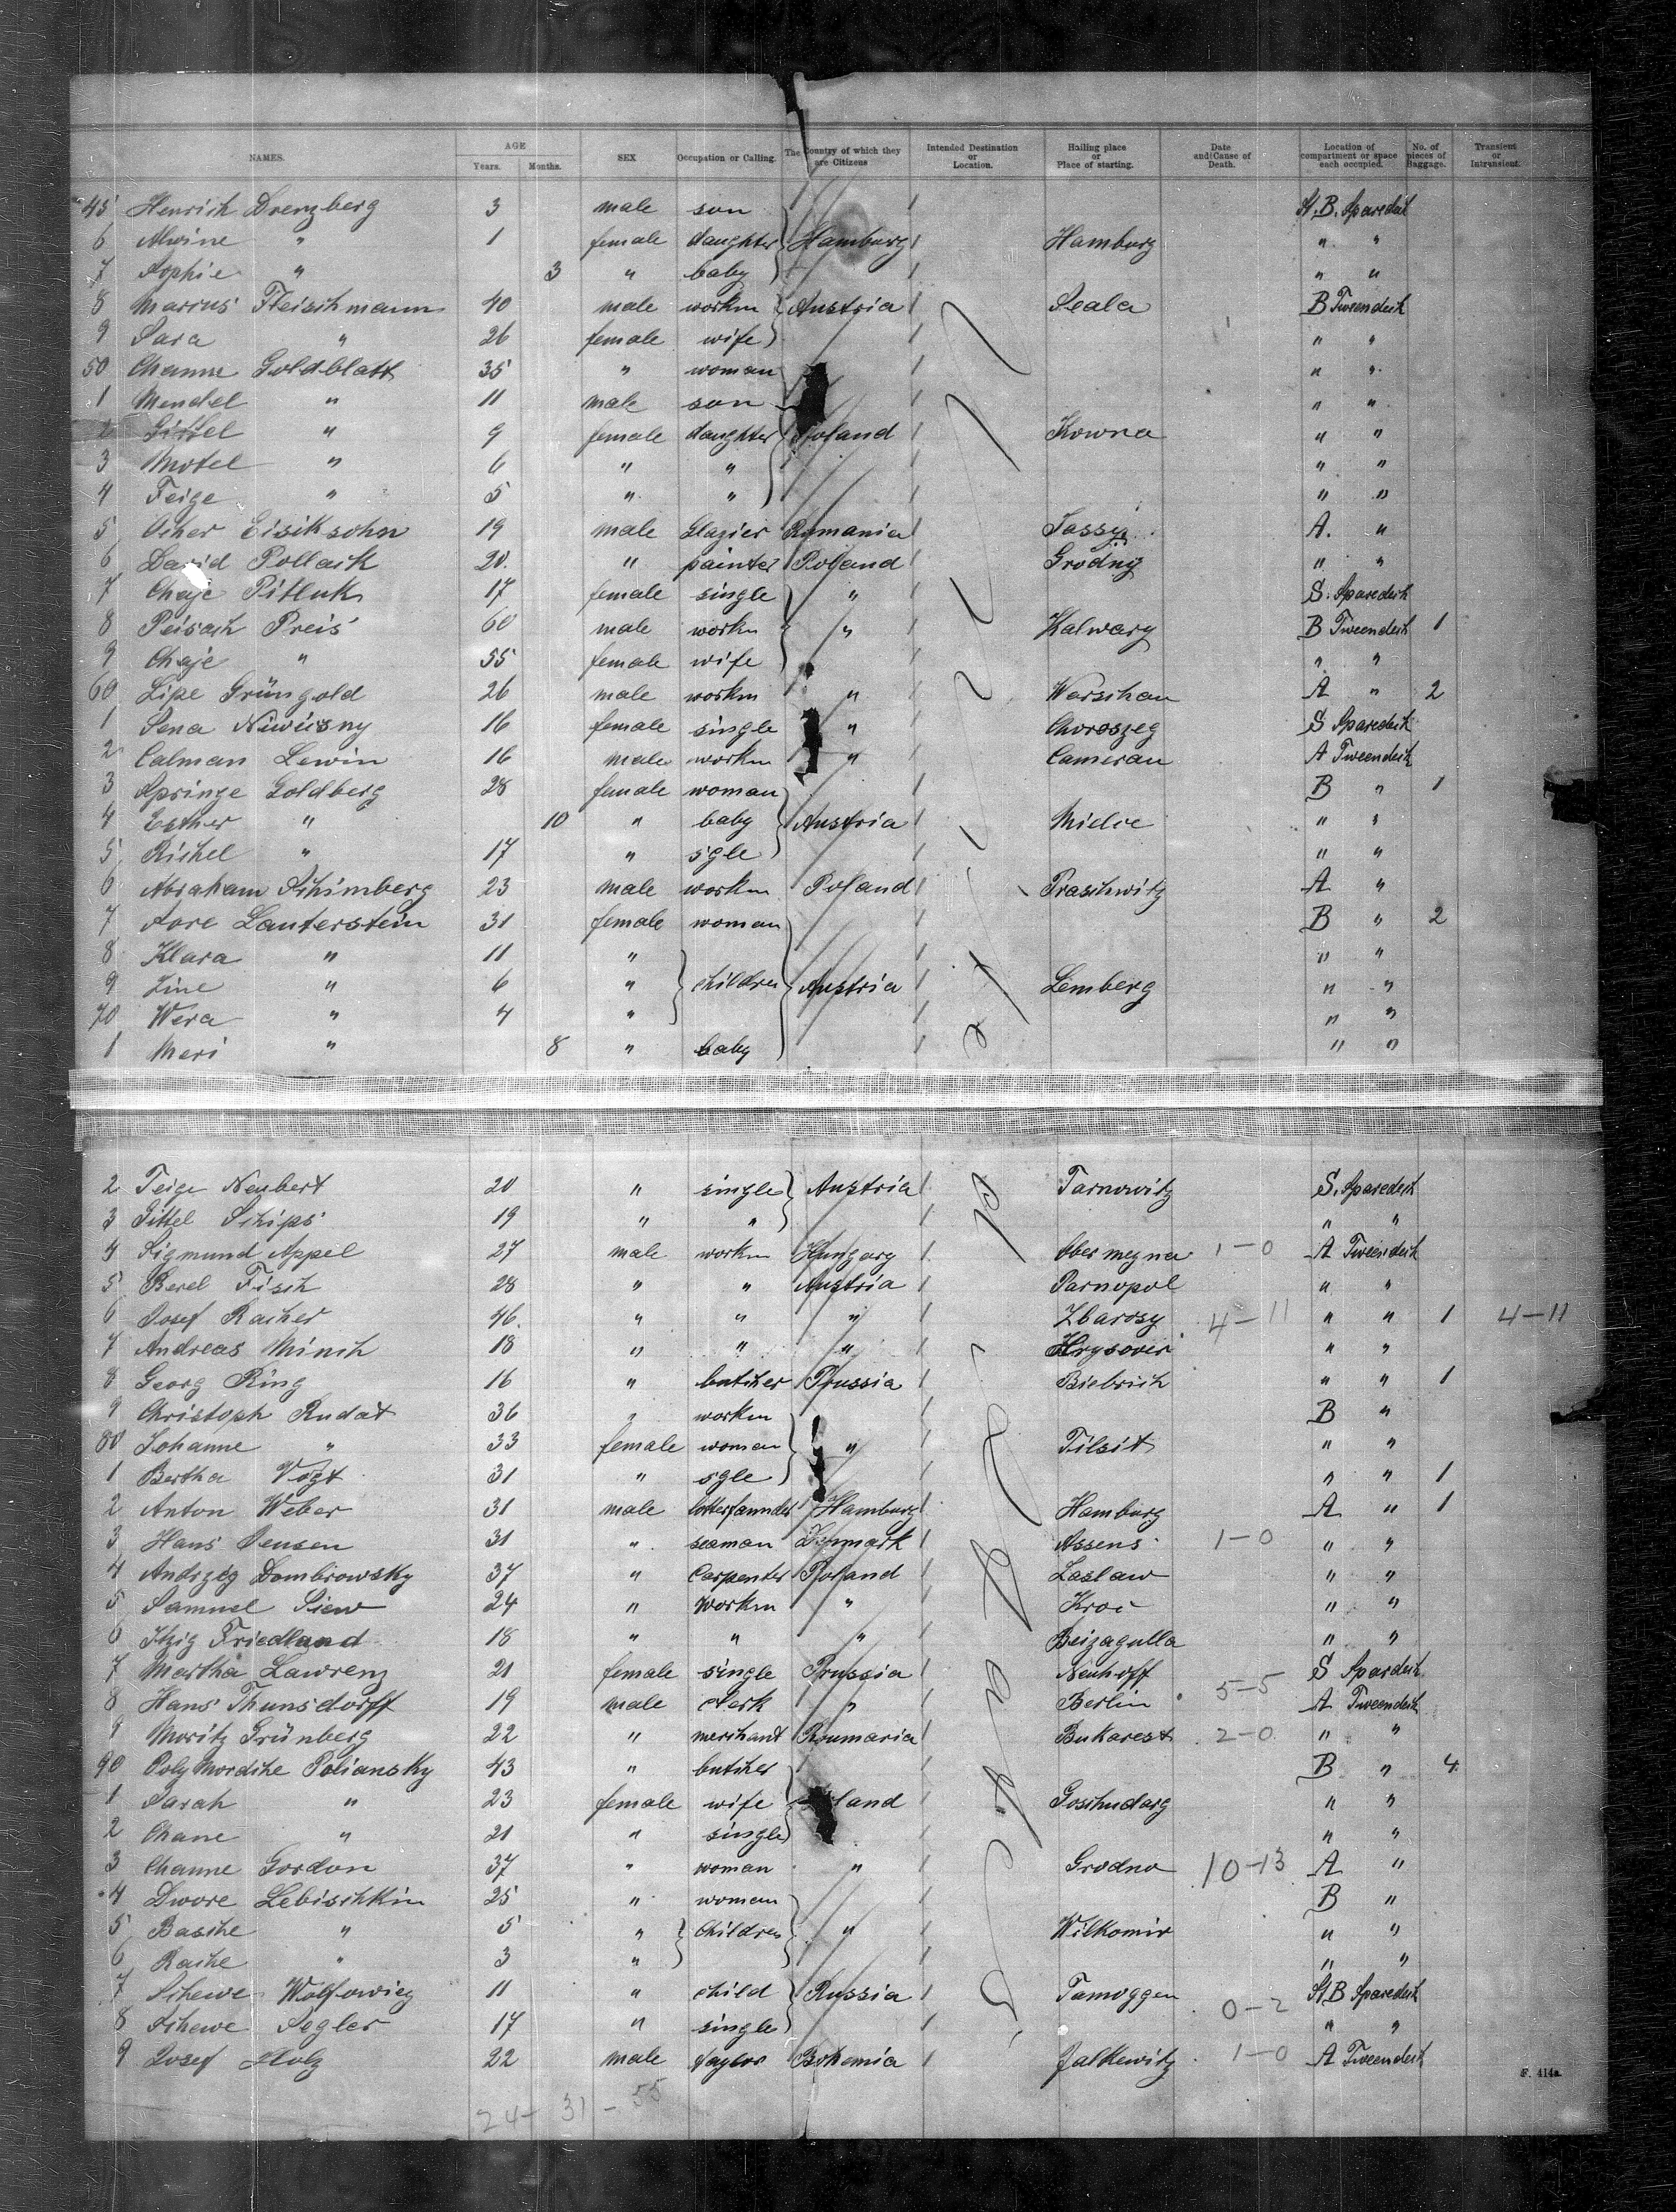 NAMES. AGE Years. Months. SEX Occupation or Calling. The Country of which they are Citizens Intended Destination or Location. Hailing place or Place of starting. Date and Cause of Death. Location of compartment or space each occupied. No. of pieces of Baggage. Transient or Intransient.
45 Henrich Drenzberg 3 male son St. B. Sparedeck
6 Alwine " 1 female daughter Hamburg Hamburg " "
7 Sophie " 3 " baby " "
8 Marcus Fleischmann 40 male workm Austria Seala B Tweendeck
9 Sara " 26 female wife " "
50 Channe Goldblatt 35 " woman " "
1 Mendel " 11 male son " "
2 Gittel " 9 female daughter Poland Kowna " "
3 Motel " 6 " " " "
4 Feige " 5 " " " "
5 Oscher Eisiksohn 19 male Glazier Rumania Jassy A. "
6 David Pollack 20. " painter Poland Grodny " "
7 Chaje Pitluk 17 female single " S. Sparedeck
8 Peisach Preis 60 male workm " Kalwary B Tweendeck 1
9 Chaje " 55 female wife " "
60 Lipe Grüngold 26 male workm " Warschau A " 2
1 Sena 16 female single " Choroszeg S Sparedeck
2 Calman Lewin 16 male workm " Cameran A Tweendeck
3 Sprinze Goldberg 28 female woman B " 1
4 Esther " 10 " baby Austria Mielec " "
5 Richel " 17 " sgle " "
6 Abraham Schimberg 23 male workm Poland Praschwitz A "
7 Sore Lauterstein 31 female woman B " 2
8 Klara " 11 " " "
9 Zine " 6 " children Austria Lemberg " "
70 Wera " 4 " " "
1 Meri " 8 " baby " "
2 Feige Neubert 20 " single Austria Tarnowitz S. Sparedeck
3 Gittel Schips 19 " " " "
4 Sigmund Appel 27 male workm Hungary Obermegna 1-0 A Tweendeck
5 Berel Fisch 28 " " Austria Tarnopol " "
6 Josef Racher 46. " " " Zbarosy 4-11 " " 1 4-11
7 Andreas Minich 18 " " " " "
8 Georg Ring 16 " butcher Prussia Biebrich " " 1
9 Christoph Rudat 36 " workm B "
80 Johanne " 33 female woman " Tilsit " "
1 Bertha Vogt 31 " sgle " " 1
2 Anton Weber 31 male Hamburg Hamburg A " 1
3 Hans Jensen 31 " seaman Denmark Assens 1-0 " "
4 Andrzég Dombrowsky 37 " Carpenter Poland Laslaw " "
5 Samuel Siew 24 " Workm " Kroi " "
6 Itzig Friedland 18 " " " Beizagulla " "
7 Martha Lawrenz 21 female single Prussia Neuhoff S Spardeck
8 Hans Thunsdorff 19 male clerk " Berlin 5-5 A Tweendeck
9 Moritz Grünberg 22 " merchant Roumania Bukarest 2-0 " "
90 Poly Mordche Poliansky 43 " butcher B " 4
1 Sarah " 23 female wife Poland Goschudarg " "
2 Chane " 21 " single " "
3 Channe Gordon 37 " woman " Grodno 10-13 A "
4 Dwore Lebischkin 25 " woman B "
5 Basche " 5 " Children " Wilkomir " "
6 Rache " 3 " " "
7 Schewe Wolfowicz 11 " child Russia Tamoggen 0-2 St. B Sparedeck
8 Schewe Segler 17 " single " "
9 Josef Holz 22 male taylor Bohemia Jalkewitz 1-0 A Tweendeck
F. 414a.
24- 31 - 55